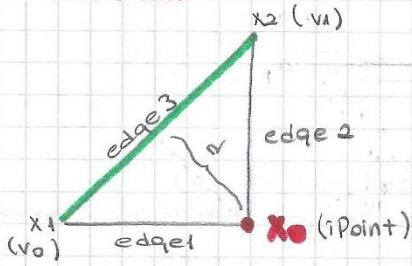 X2 (V1)
edge 3
r
edge 2
X1
(V0)
edge1
X0 (iPoint)